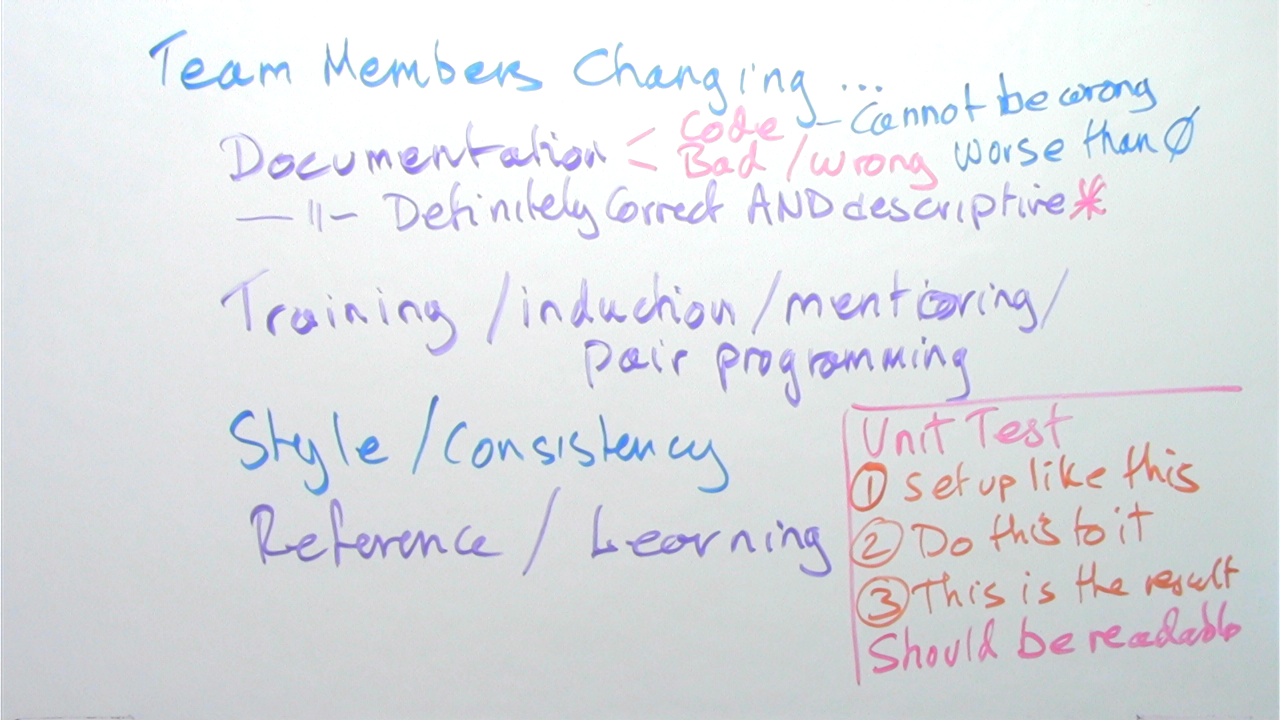 Team Members Changing ...
Documentation < Code – Cannot be wrong
Bad / wrong worse than Ø
— 11 – Definitely Correct AND descriptive*
Training / induction / mentioring /
pair programming
Style / Consistency
Reference / Learning
Unit Test
① set up like this
② Do this to it
③ This is the result
Should be readable